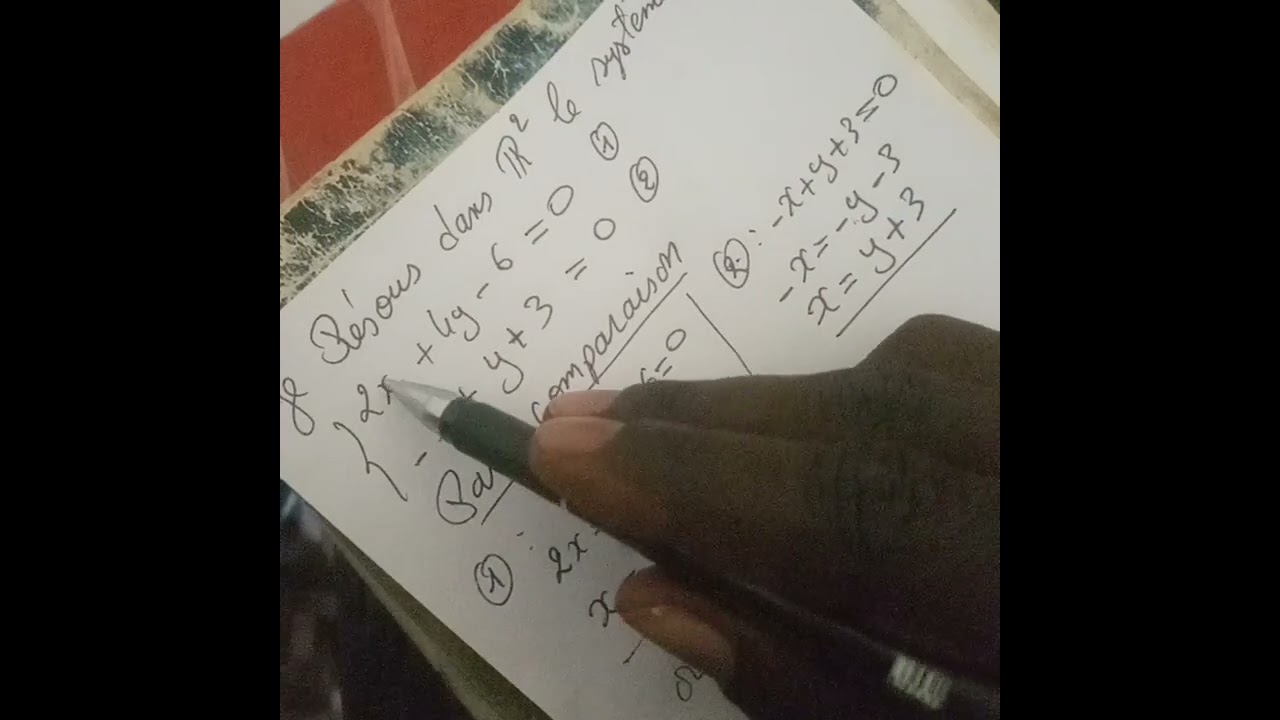 Résous dans ℝ² le système
{ 2x + 4y - 6 = 0 ①
- + y + 3 = 0 ②
Par comparaison
① : 2x 6 = 0
x
② : -x + y + 3 = 0
-x = -y - 3
x = y + 3